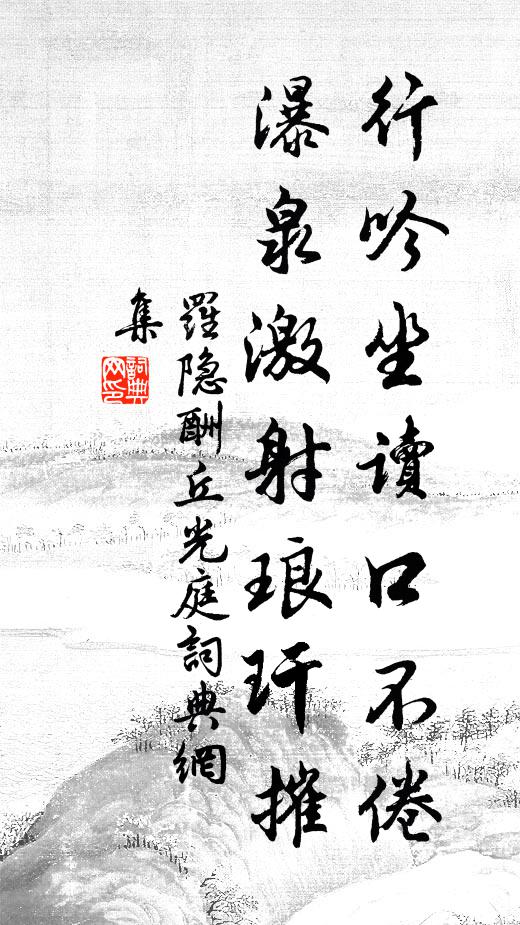 行吟坐讀口不倦
瀑泉激射琅玕摧
羅隐酬丘光庭詞典網
集
詞典
网印